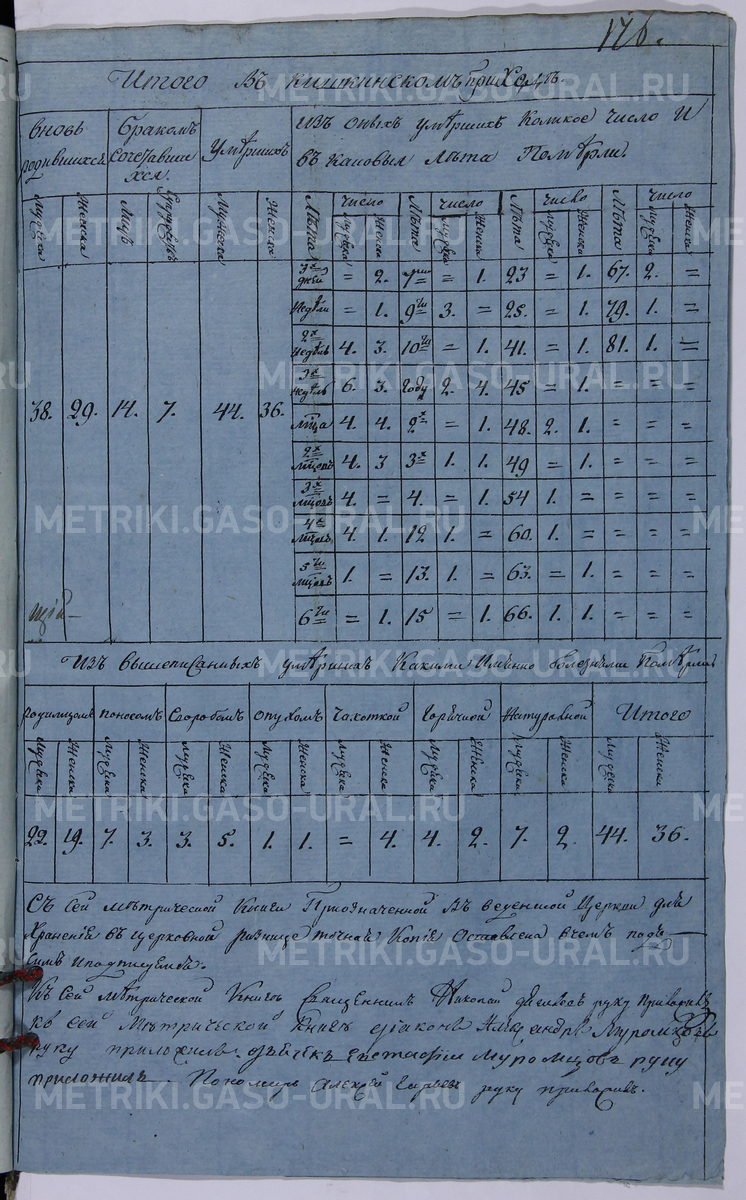 176.
Итого въ кишкинскомъ приходѣ.
вновь родившихся
бракомъ сочетавшихся.
умершихъ
изъ оныхъ умѣршихъ Коликое число и
въ каковыя лѣта Помѣрли.
мужеска Женска Мужъ мужеска Женска
Лѣта число мужеска Женска Лѣта число мужеска Женска Лѣта число мужеска Женска Лѣта число мужеска Женска
3х дней = 2. 7ми = 1. 23 = 1. 67. 2. =
недѣли = 1. 9ти 3. = 25. = 1. 79. 1. =
2х недѣль 4. 3. 10ти = 1. 41. = 1. 81. 1. =
3х недѣль 6. 3. году 2. 4. 45 = 1. = = =
38. 29. 14. 7. 44. 36.
мѣца 4. 4. 2х = 1. 48. 2. 1. = = =
2х мцовъ 4. 3 3х 1. 1. 49 = 1. = = =
3х мцовъ 4. = 4. = 1. 54 1. = = = =
4х мцовъ 4. 1. 12 1. = 60. 1. = = = =
5ти мцовъ 1. = 13. 1. = 63. = 1. = = =
6ти = 1. 15 = 1. 66. 1. 1. = = =
изъ вышеписанныхъ умѣршихъ Какими имѣнно болезньми Помѣрли
родимцомъ поносомъ Скоробомъ опухомъ Чахоткой горячкой Натуральной Итого
мужеска Женска мужеска Женска мужеска Женска мужеска Женска мужеска Женска мужеска Женска мужеска Женска мужеска Женска
22. 19. 7. 3. 3. 5. 1. 1. = 4. 4. 2. 7. 2. 44. 36.
Съ сей мѣтрической Книги Приозначенной въ веденной Церкви для
Хранения въ церковной ризнице точная Копія Оставлена в чемъ подъ
симъ и подписуемся.
Къ сей мѣтрической Книге Священникъ Николай руку приложилъ
къ сей Мѣтрической Книге діаконъ Александръ Муромцовъ
руку приложилъ. дьячекъ Евстафій Муромцовъ руку
приложилъ. Пономарь Алексѣй руку приложилъ.
METRIKI.GASO-URAL.RU